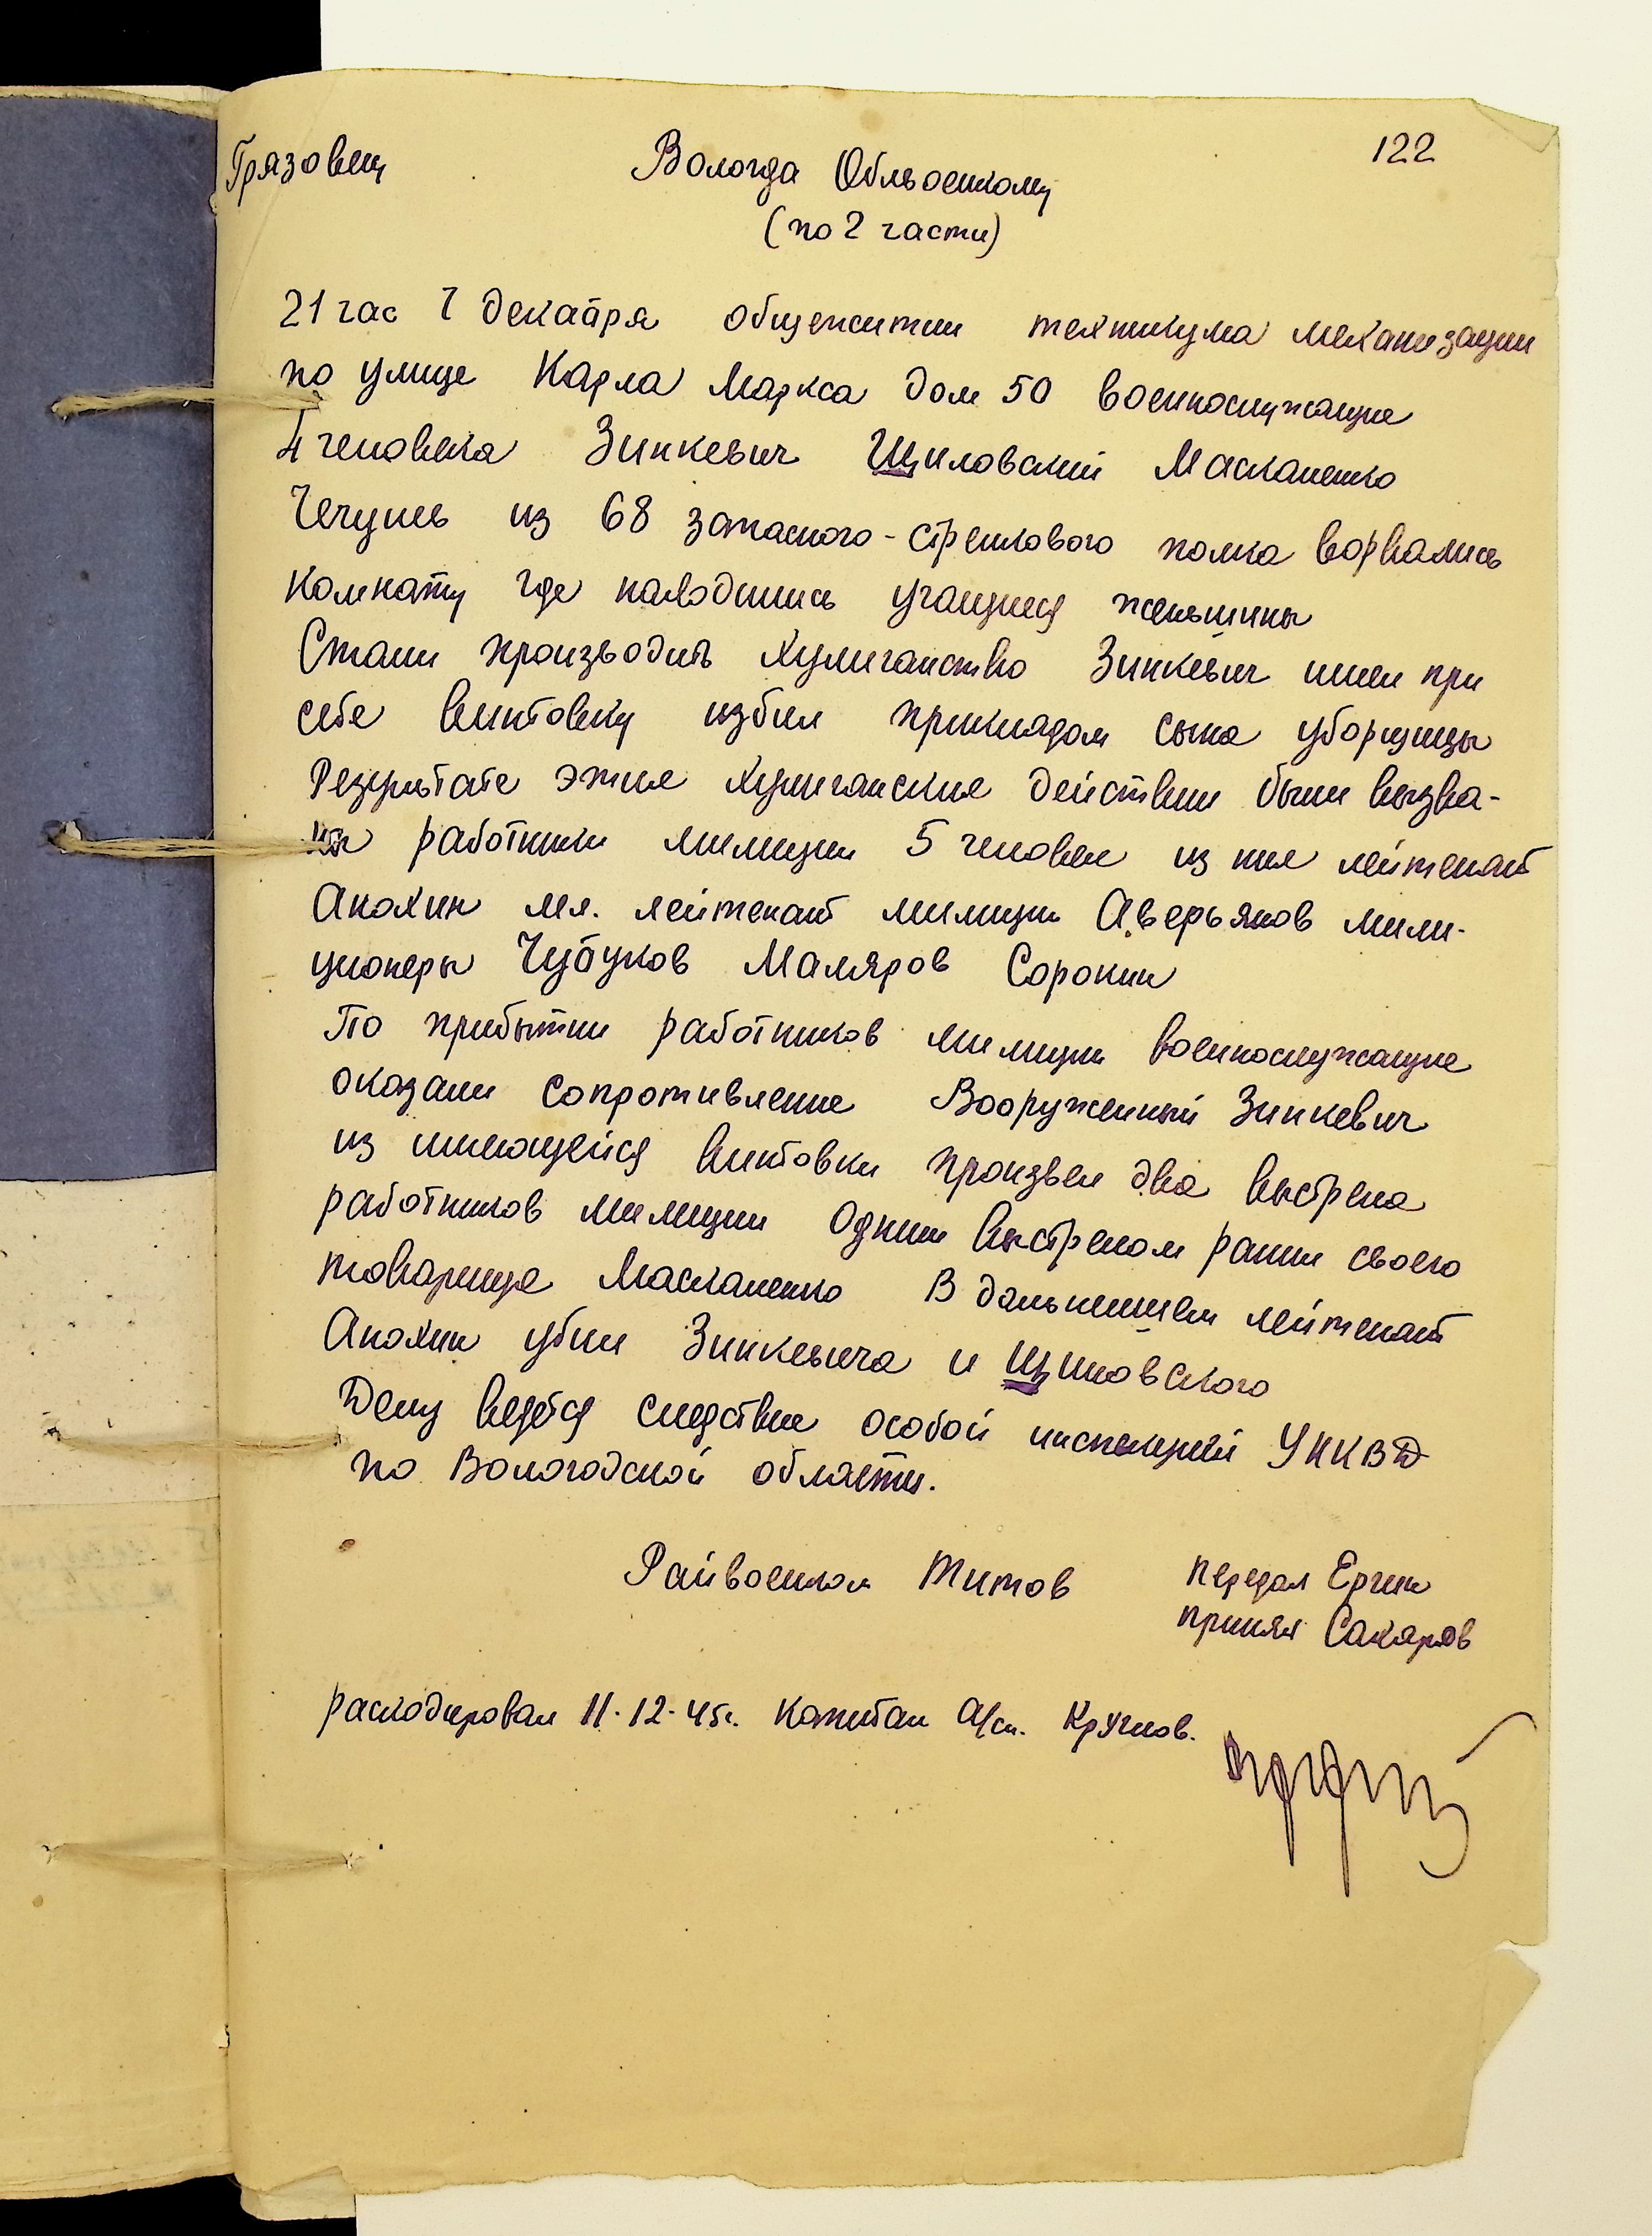 122
Грязовец Вологда Облвоенкому
(по 2 части)
21 час 7 декабря общежитии техникума механизации
по улице Карла Маркса дом 50 военнослужащие
4 человека Зинкевич Щиловский Маскаленко
Чечулев из 68 запасного-стрелкового полка ворвались
комнату где находились учащиеся женьщины
Стали производить хулиганство Зинкевич имел при
себе винтовку избил прикладом сына уборщицы
Результате этих хулиганских действии были вызва-
ны работники милиции 5 человек из них лейтенант
Анохин мл. лейтенант милиции Аверьянов мили-
ционеры Чубуков Маляров Сорокин
По прибытии работников милиции военнослужащие
оказали сопротивление Вооруженный Зинкевич
из имеющейся винтовки произвел два выстрела
работников милиции Одним выстрелом ранил своего
товарища Маскаленко В дальнейшем лейтенант
Анохин убил Зинкевича и Щиловского
Делу ведется следствие особой инспекцией УНКВД
по Вологодской области.
Райвоенком Титов передал Ергин
принял Сахаров
раскодировал 11.12.45г. Капитан а/сл. Круглов.